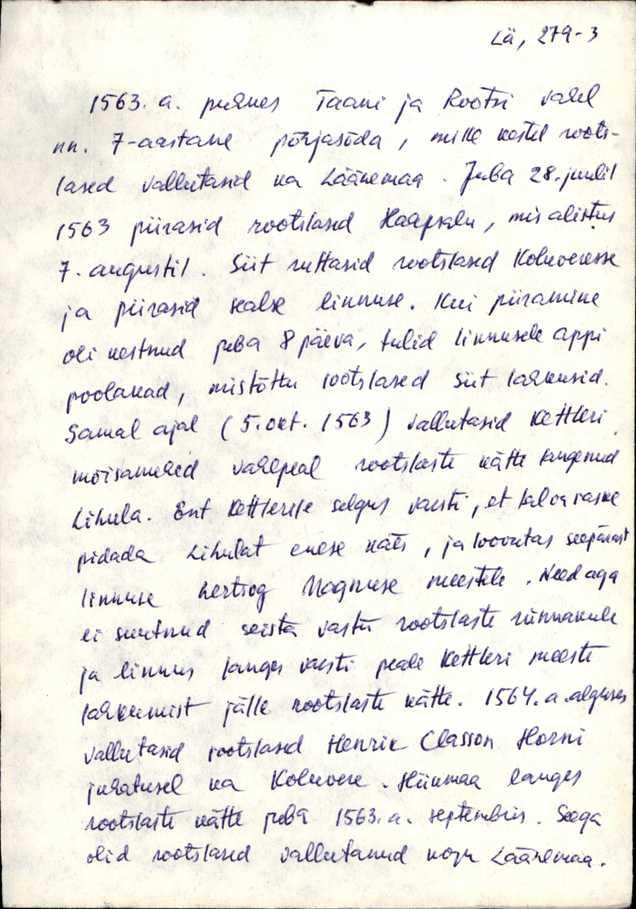 Lä, 279-3
1563. a. puhkes Taani ja Rootsi vahel
nn. 7-aastane põhjasõda, mille kestel roots-
lased vallutasid ka Läänemaa. Juba 28. juulil
1563 piirasid rootslased Haapsalu, mis alistus
7. augustil. Siit ruttasid rootslased Koluveresse
ja piirasid sealse linnuse. Kui piiramine
oli kestnud juba 8 päeva, tulid linnusele appi
poolakad, mistõttu rootslased siit lahkusid.
Samal ajal (5. okt. 1563) vallutasid Kettleri
mõisamehed vahepeal rootslaste kätte langenud
Lihula. Ent Kettlerile selgus varsti, et tal on raske
pidada Lihulat enese käes, ja loovutas seepärast
linnuse hertsog Magnuse meestele. Need aga
ei suutnud seista vastu rootslaste rünnakule
ja linnus langes varsti peale Kettleri meeste
lahkumist jälle rootslaste kätte. 1564. a. alguses
vallutasid rootslased Henrik Classon Horni
juhatusel ka Koluvere. Hiiumaa langes
rootslaste kätte juba 1563. a. septembris. Seega
olid rootslased vallutanud kogu Läänemaa.